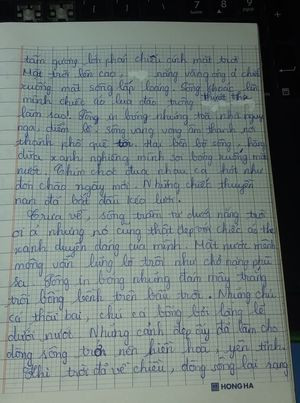 tấm gương lớn phản chiếu ánh mặt trời
Mặt trời lên cao, nắng vàng óng ả chiếu
xuống mặt sông lấp loáng. Sông khoác lên
mình chiếc áo lụa đào trông thướt tha
làm sao! Sông in bóng những toà nhà nguy
nga, diễm lệ. Sông vang vọng âm thanh nơi
thành phố quê tôi. Hai bên bờ sông, hàng
dừa xanh nghiêng mình soi bóng xuống mặt
nước. Chim chóc đua nhau ca hót như
đón chào ngày mới. Những chiếc thuyền
nan đã bắt đầu kéo lưới.
Trưa về, sông trầm tư dưới nắng trời
oi ả nhưng nó cũng thật đẹp với chiếc áo the
xanh duyên dáng của mình. Mặt nước mênh
mông vẫn lững lờ trôi như chở nặng phù
sa. Sông in bóng những đám mây trắng
trôi bồng bềnh trên bầu trời. Những chú
cá thòi bai, chú cá bống bơi lặng lẽ
dưới nước. Những cảnh đẹp ấy đã làm cho
dòng sông trở nên hiền hoà, yên tĩnh.
Khi trời đã về chiều, dòng sông lại rộng
HONG HA